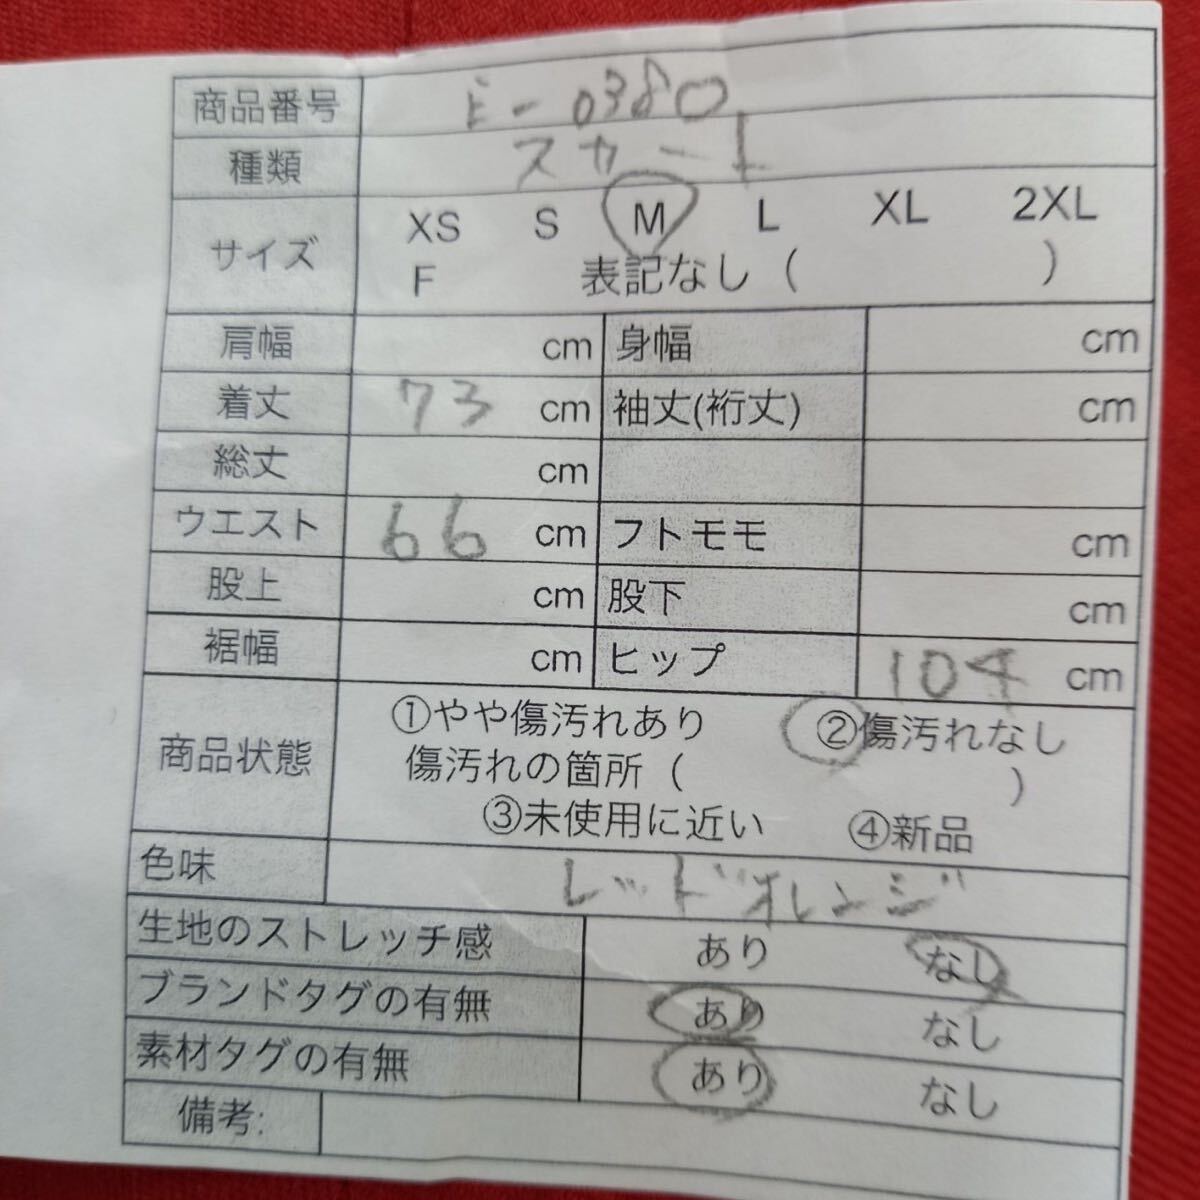 商品番号 E-0380
種類 スカート
サイズ XS S M L XL 2XL
F 表記なし ( )
肩幅 cm 身幅 cm
着丈 73 cm 袖丈(裄丈) cm
総丈 cm
ウエスト 66 cm フトモモ cm
股上 cm 股下 cm
裾幅 cm ヒップ 104 cm
①やや傷汚れあり ②傷汚れなし
商品状態 傷汚れの箇所 ( )
③未使用に近い ④新品
色味 レッドオレンジ
生地のストレッチ感 あり なし
ブランドタグの有無 あり なし
素材タグの有無 あり なし
備考: